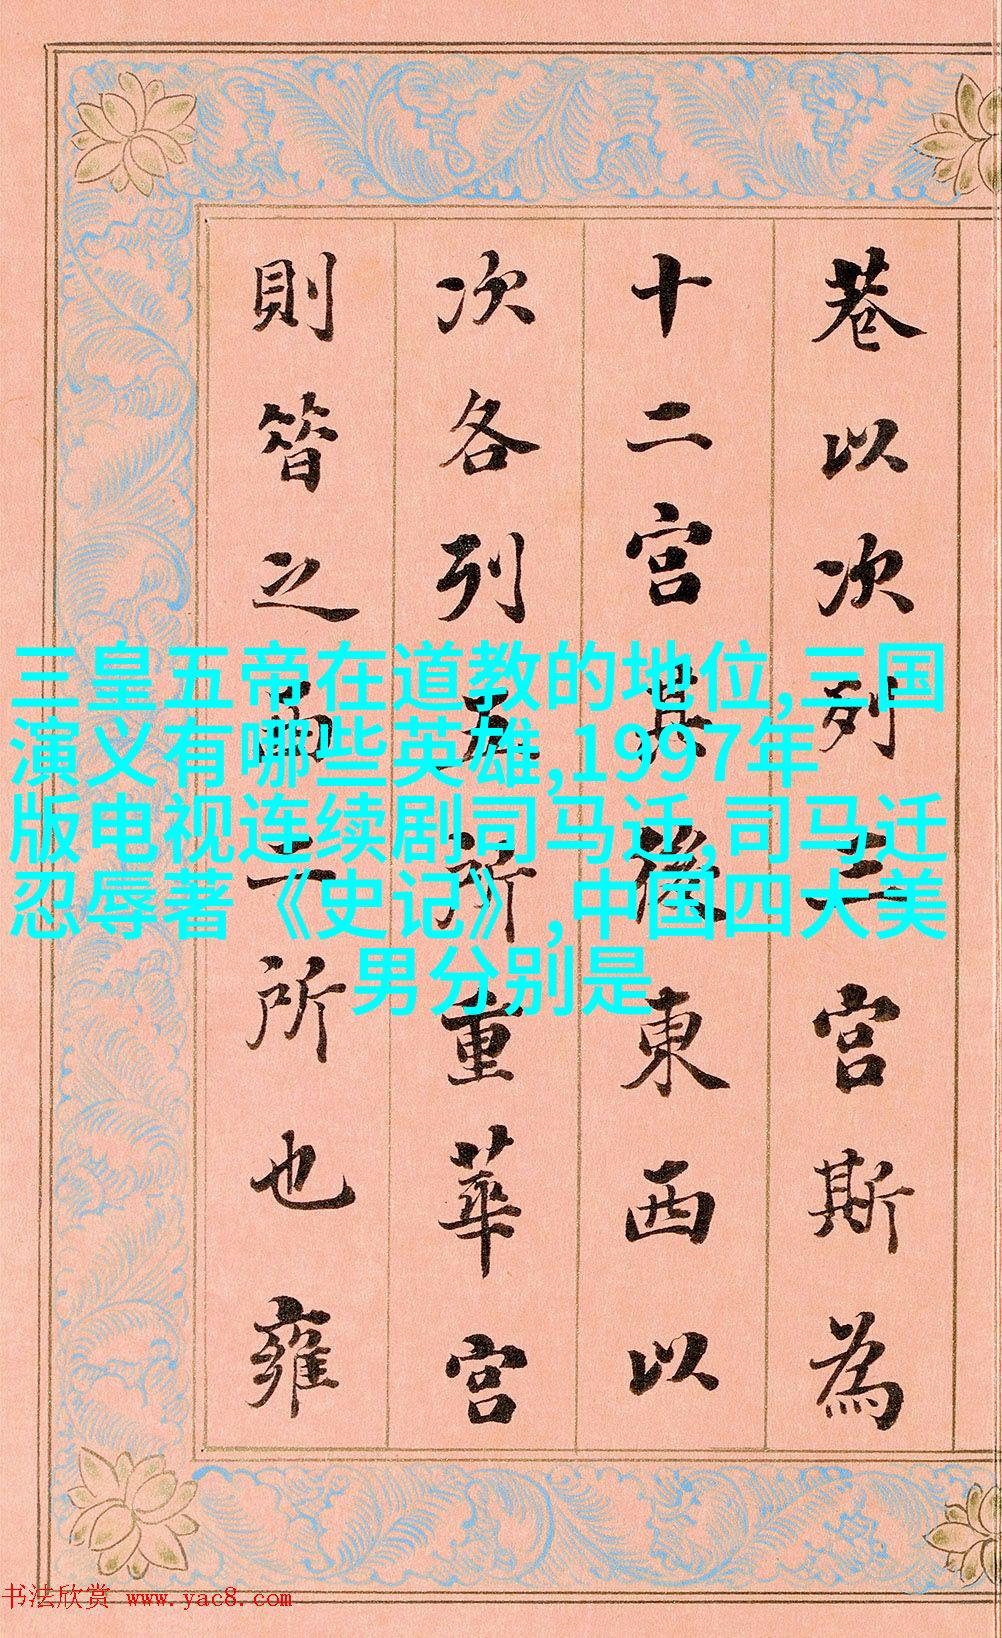 巷以次列三宫斯為
十二宫其後東西以
次各列五所重華宫
則之西二所也雍
三皇五帝在道教的地位,三国
演义有哪些英雄,1997年
版电视连续剧司马迁,司马迁
忍辱著《史记》,中国四大美
男分别是
书法欣赏 www.yac8.com